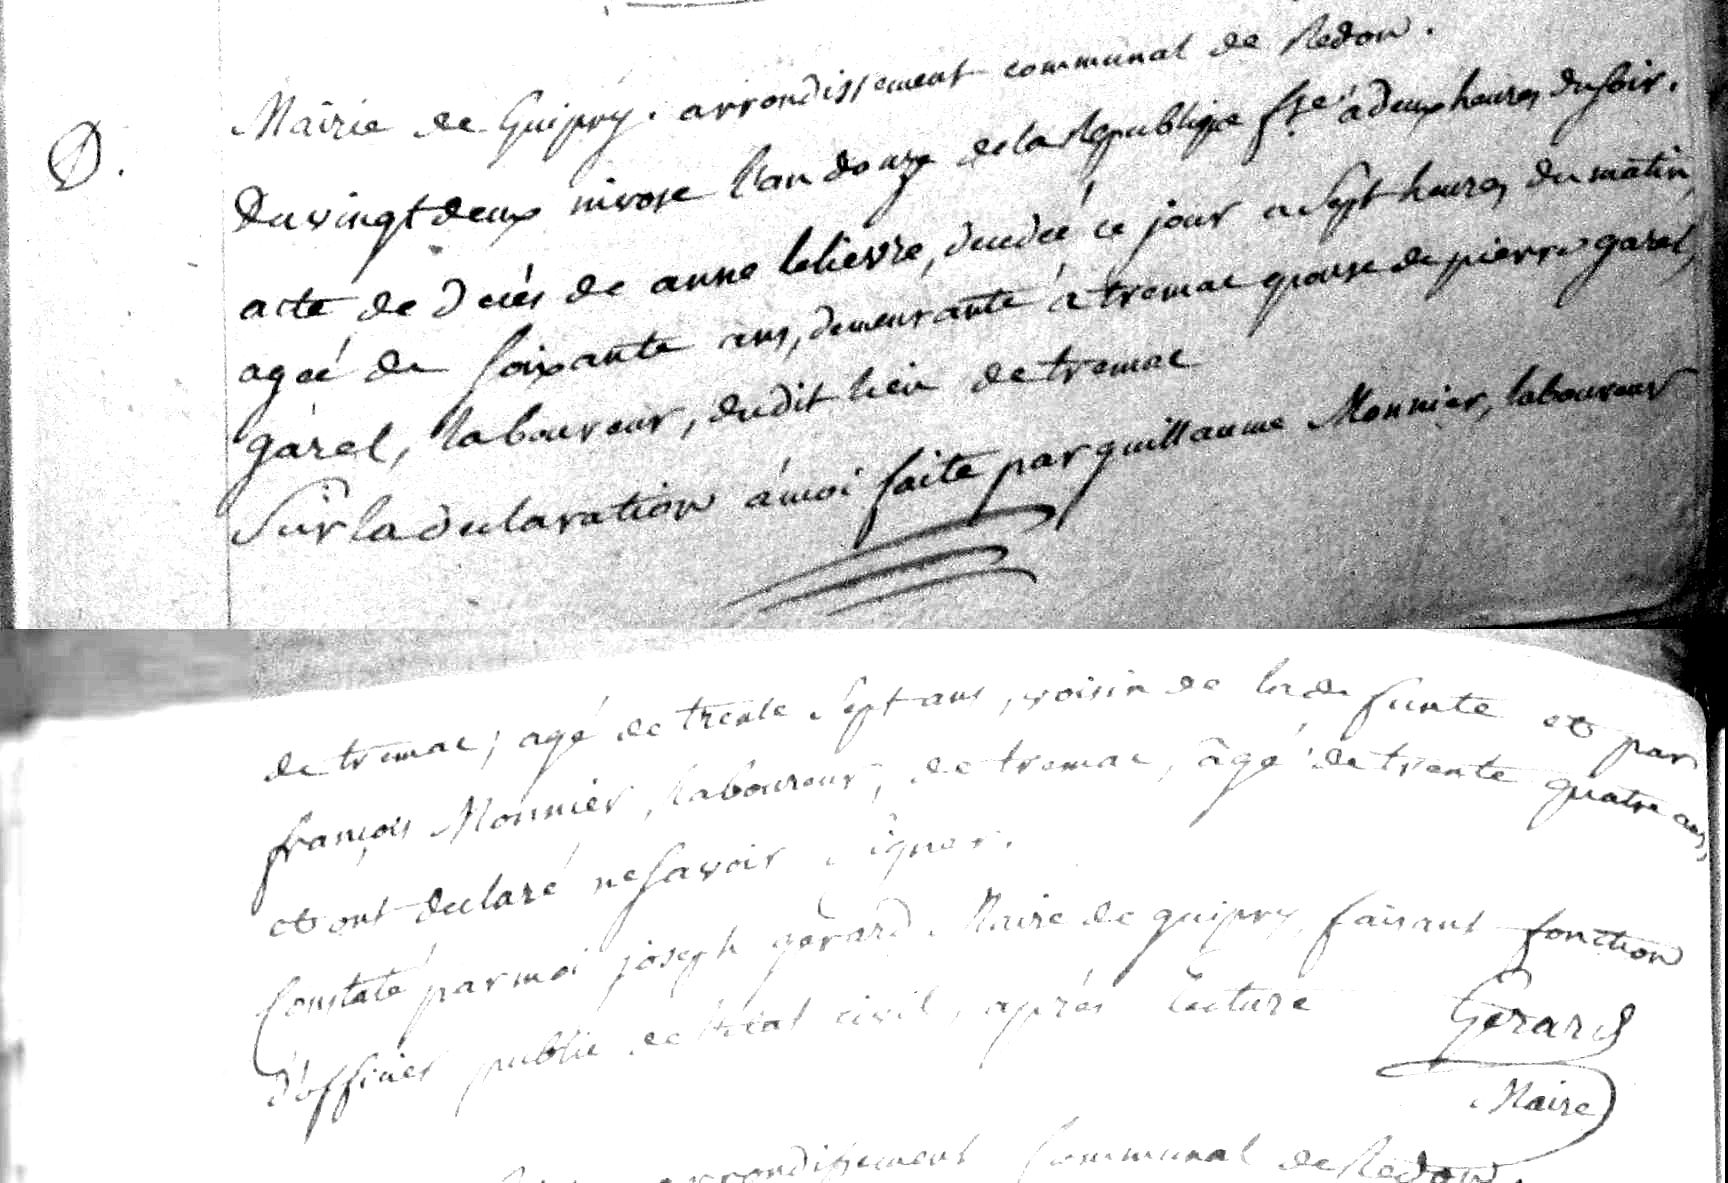 Mairie de Guipry. arrondissement communal de Redon.
D.
Du vingt deux nivose l'an douze de la Republique fse à deux heures du soir.
acte de décés de anne lelievre, decedée ce jour a sept heures du matin,
agée de soixante ans, demeurante à tremac epouse de pierre garel,
garel, laboureur, dudit lieu de tremac
Sur la declaration à moi faite par guillaume Monnier, laboureur
de tremac, agé de trente sept ans, voisin de la defunte et par
françois Monnier, laboureur, de tremac, âgé de trente quatre ans,
et ont declaré ne savoir signer.
Constaté par moi joseph gerard Maire de guipry, faisant fonction
d'officier public de l'état civil, après lecture
Gerard
Maire
arrondissement communal de Redon.